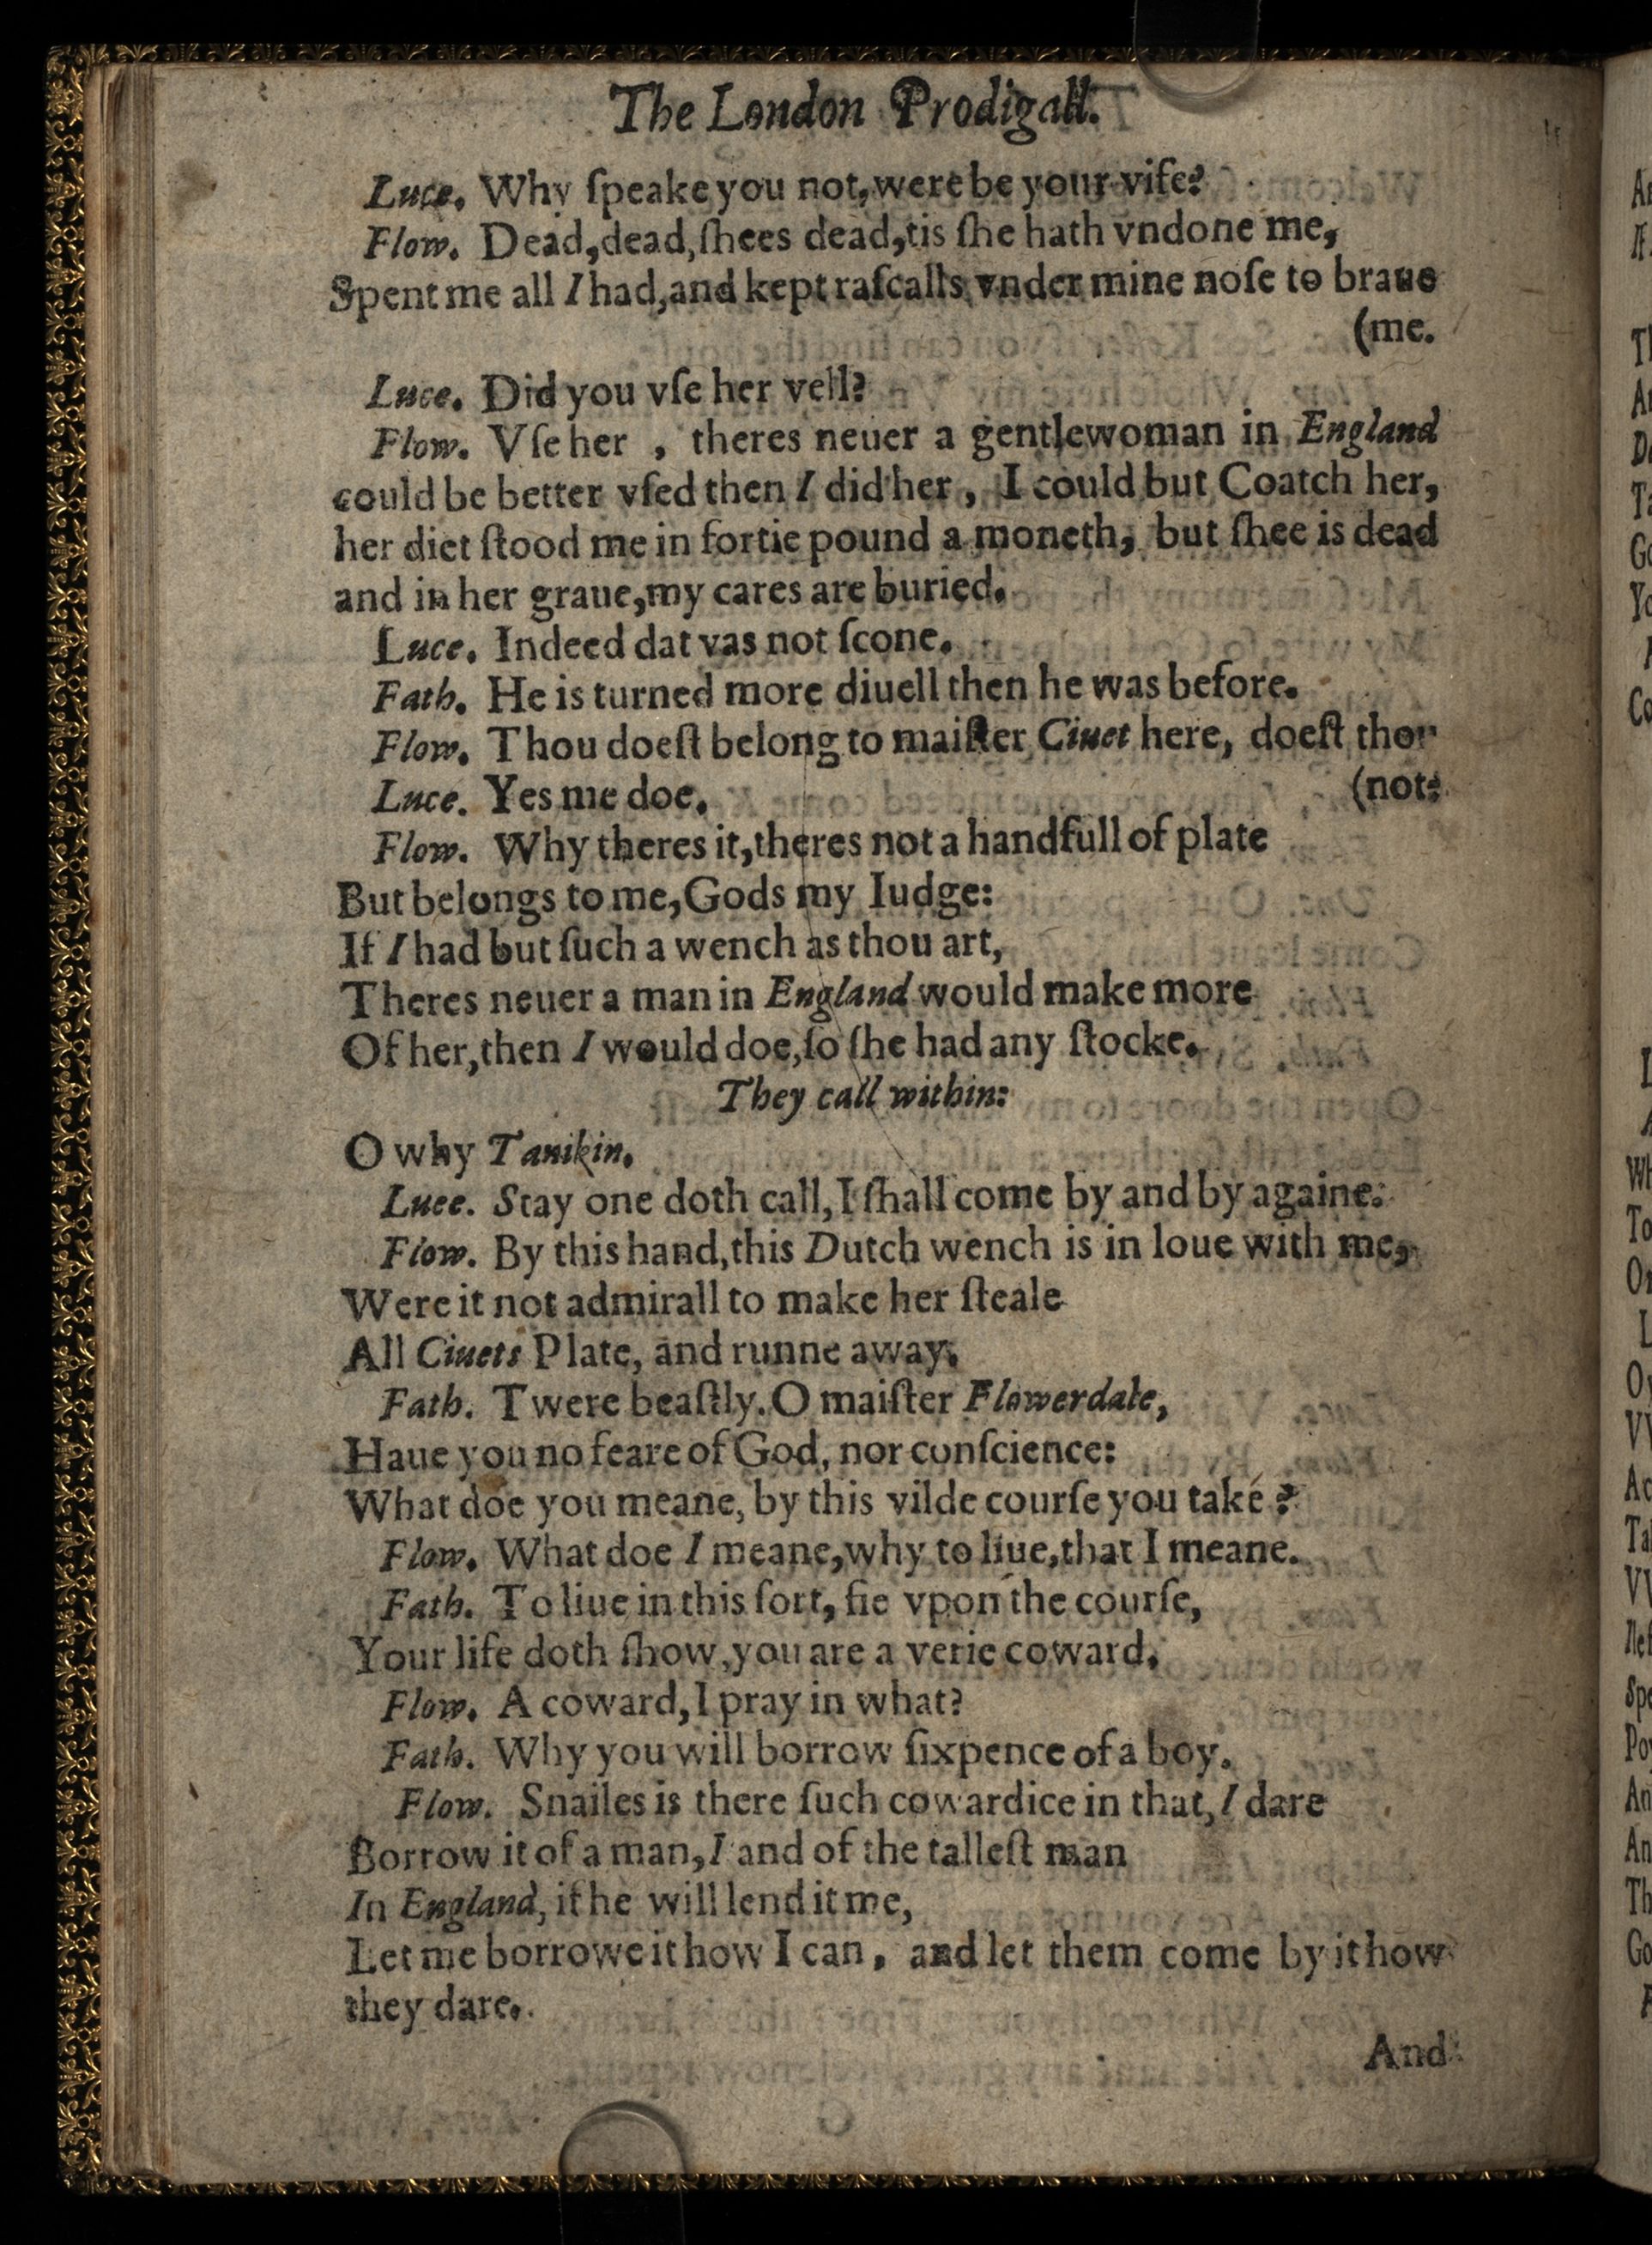 The London Prodigall.
Luce. Why ſpeake you not, were be your vife?
Flow. Dead, dead, ſhees dead, tis ſhe hath vndone me,
Spent me all I had, and kept raſcalls vnder mine noſe to braue
(me.
Luce. Did you vſe her vell?
Flow. Vſe her , theres neuer a gentlewoman in England
could be better vſed then I did her , I could but Coatch her,
her diet ſtood me in fortie pound a moneth, but ſhee is dead
and in her graue, my cares are buried.
Luce. Indeed dat vas not ſcone.
Fath. He is turned more diuell then he was before.
Flow. Thou doeſt belong to maiſter Ciuet here, doeſt thou
Luce. Yes me doe. (not?
Flow. Why theres it, theres not a handfull of plate
But belongs to me, Gods my Iudge:
If I had but ſuch a wench as thou art,
Theres neuer a man in England would make more
Of her, then I would doe, ſo ſhe had any ſtocke.
They call within:
O why Tanikin.
Luce. Stay one doth call, I ſhall come by and by againe.
Flow. By this hand, this Dutch wench is in loue with me,
Were it not admirall to make her ſteale
All Ciuets Plate, and runne away.
Fath. Twere beaſtly. O maiſter Flowerdale,
Haue you no feare of God, nor conſcience:
What doe you meane, by this vilde courſe you take ?
Flow. What doe I meane, why to liue, that I meane.
Fath. To liue in this ſort, fie vpon the courſe,
Your life doth ſhow, you are a verie coward.
Flow. A coward, I pray in what?
Fath. Why you will borrow ſixpence of a boy.
Flow. Snailes is there ſuch cowardice in that, I dare
Borrow it of a man, I and of the talleſt man
In England, if he will lend it me,
Let me borrowe it how I can , and let them come by it how
they dare.
And